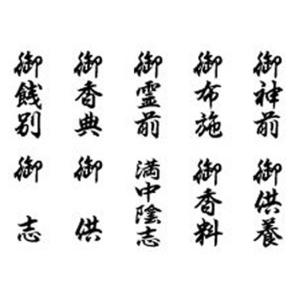 御神前
御布施
御霊前
御香典
御餞別
御供養
御香料
満中陰志
御供
御志